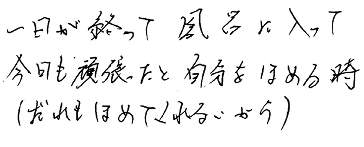 一日が終って 風呂に入って
今日も頑張ったと自分をほめる時
(だれもほめてくれないから)